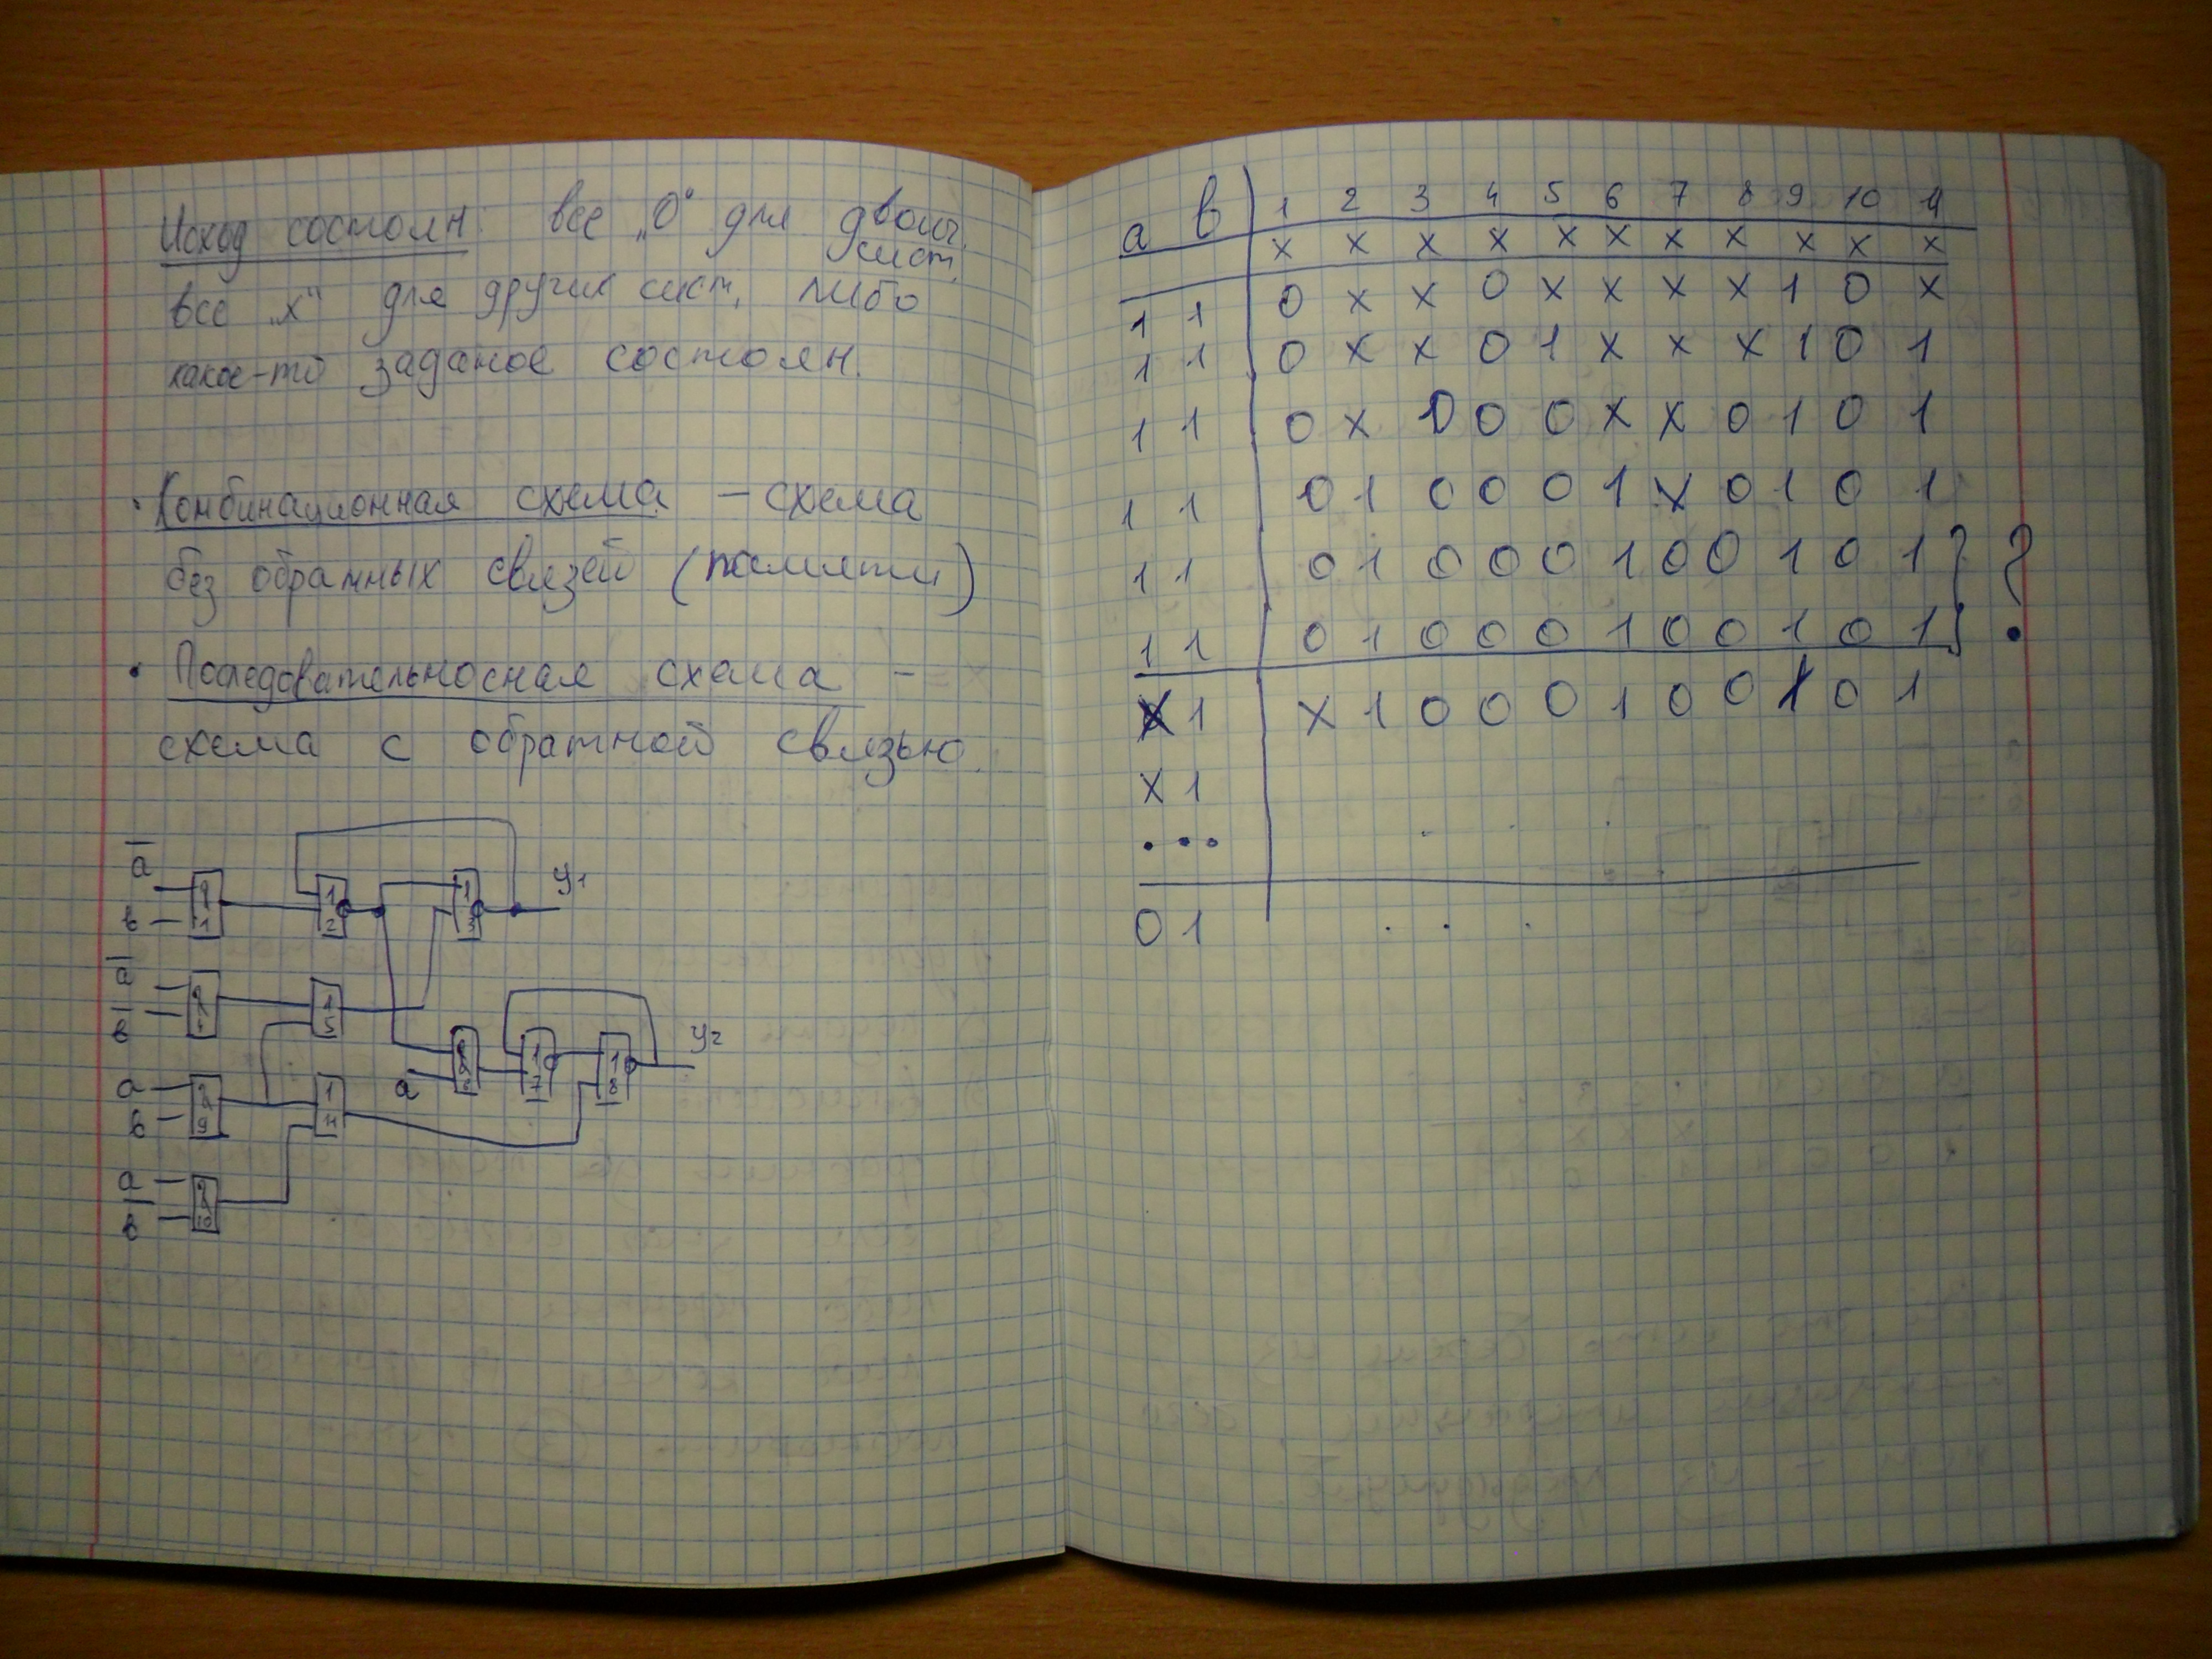 Исход состоян: все "0" для двоич. сист.
все "х" для других сист, либо
какое-то заданое состоян.
· Комбинационная схема – схема
без обратных связей (памяти)
· Последовательносная схема –
схема с обратной связью.
a̅
в
1
1
2
1
3
y1
a̅
в̅
1
5
a
в
&
9
1
11
a
&
6
1
7
1
8
y2
a
в̅
&
10
a в 1 2 3 4 5 6 7 8 9 10 11
x x x x x x x x x x x
1 1 0 x x 0 x x x x 1 0 x
1 1 0 x x 0 1 x x x 1 0 1
1 1 0 x 0 0 0 x x 0 1 0 1
1 1 0 1 0 0 0 1 x 0 1 0 1
1 1 0 1 0 0 0 1 0 0 1 0 1
1 1 0 1 0 0 0 1 0 0 1 0 1 } ?
x 1 x 1 0 0 0 1 0 0 1 0 1
x 1
...
0 1 . . .